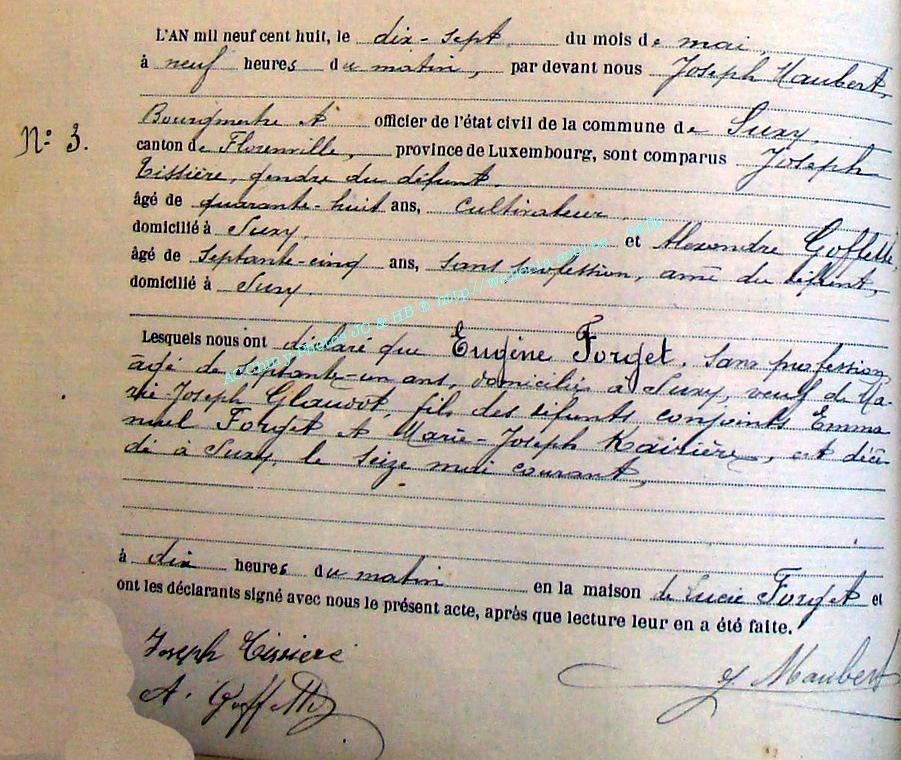 L'AN mil neuf cent huit, le dix-sept du mois de mai,
à neuf heures du matin, par devant nous Joseph Maubert,
Bourgmestre et officier de l'état civil de la commune de Suxy,
N° 3.
canton de Florenville, province de Luxembourg, sont comparus Joseph
Tissière, gendre du défunt,
âgé de quarante-huit ans, cultivateur
domicilié à Suxy, et Alexandre Goffette,
âgé de septante-cinq ans, sans profession, ami du défunt,
domicilié à Suxy,
Lesquels nous ont déclaré que Eugène Forget, sans profession
âgé de septante-un ans, domicilié à Suxy, veuf de Ma-
rie-Joseph Glauvot, fils des défunts conjoints Emma-
nuel Forget et Marie-Joseph Kaisière, est décé-
dé à Suxy, le seize mai courant,
à dix heures du matin en la maison de Lucie Forget et
ont les déclarants signé avec nous le présent acte, après que lecture leur en a été faite.
Joseph Tissiere
A. Goffette
J Maubert
Photos JC & HB ® http//